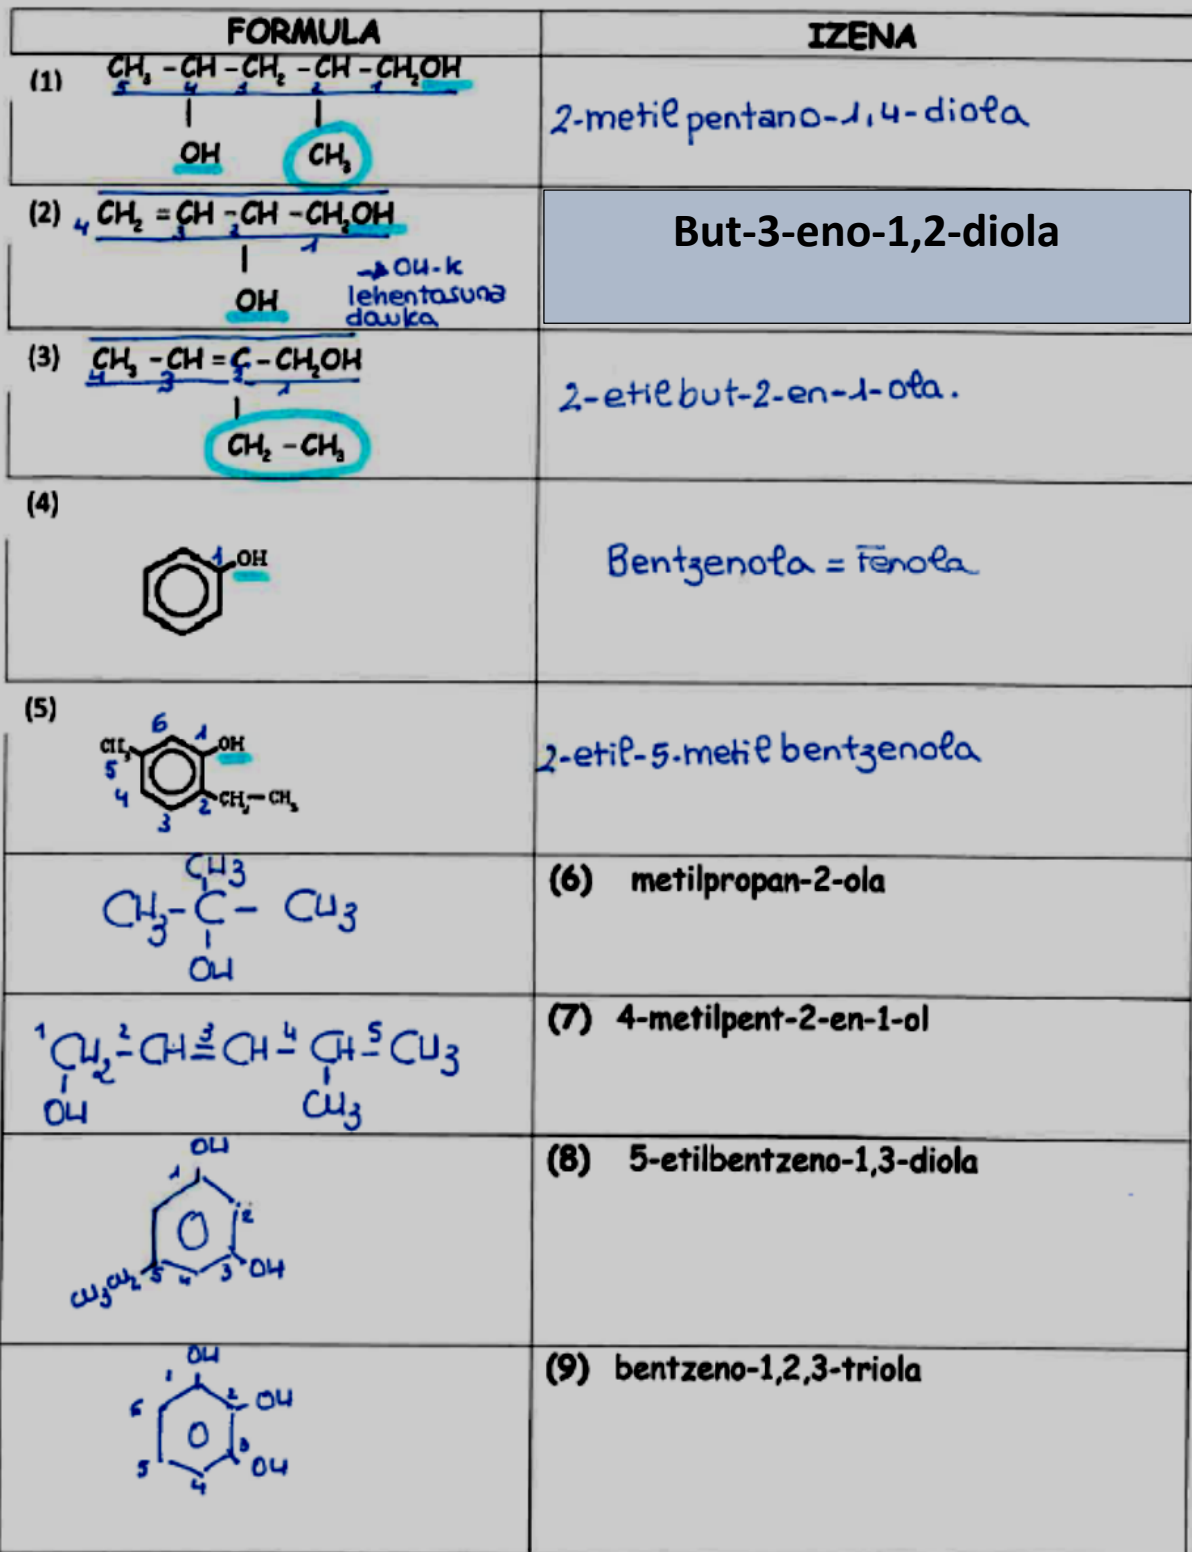 FORMULA IZENA
(1) CH₃ -CH -CH₂ -CH -CH₂OH
5 4 3 2 1
OH CH₃
2-metil pentano-1,4-diola
(2) 4 CH₂ =CH -CH -CH₂OH
3 2 1
OH
→ OH-k
lehentasuna
dauka
But-3-eno-1,2-diola
(3) CH₃ -CH =C -CH₂OH
4 3 2 1
CH₂ -CH₃
2-etilbut-2-en-1-ola.
(4)
1 OH
Bentzenola = Fenola
(5)
6 1
CH₃ OH
5
4 2 CH₂-CH₃
3
2-etil-5-metil bentzenola
CH3
CH3-C- CH3
OH
(6) metilpropan-2-ola
1 2 3 4 5
CH2-CH=CH-CH-CH3
OH CH3
(7) 4-metilpent-2-en-1-ol
OH
1
2
CH3CH2 5 4 3 OH
(8) 5-etilbentzeno-1,3-diola
OH
1
6 2 OH
5 3 OH
4
(9) bentzeno-1,2,3-triola